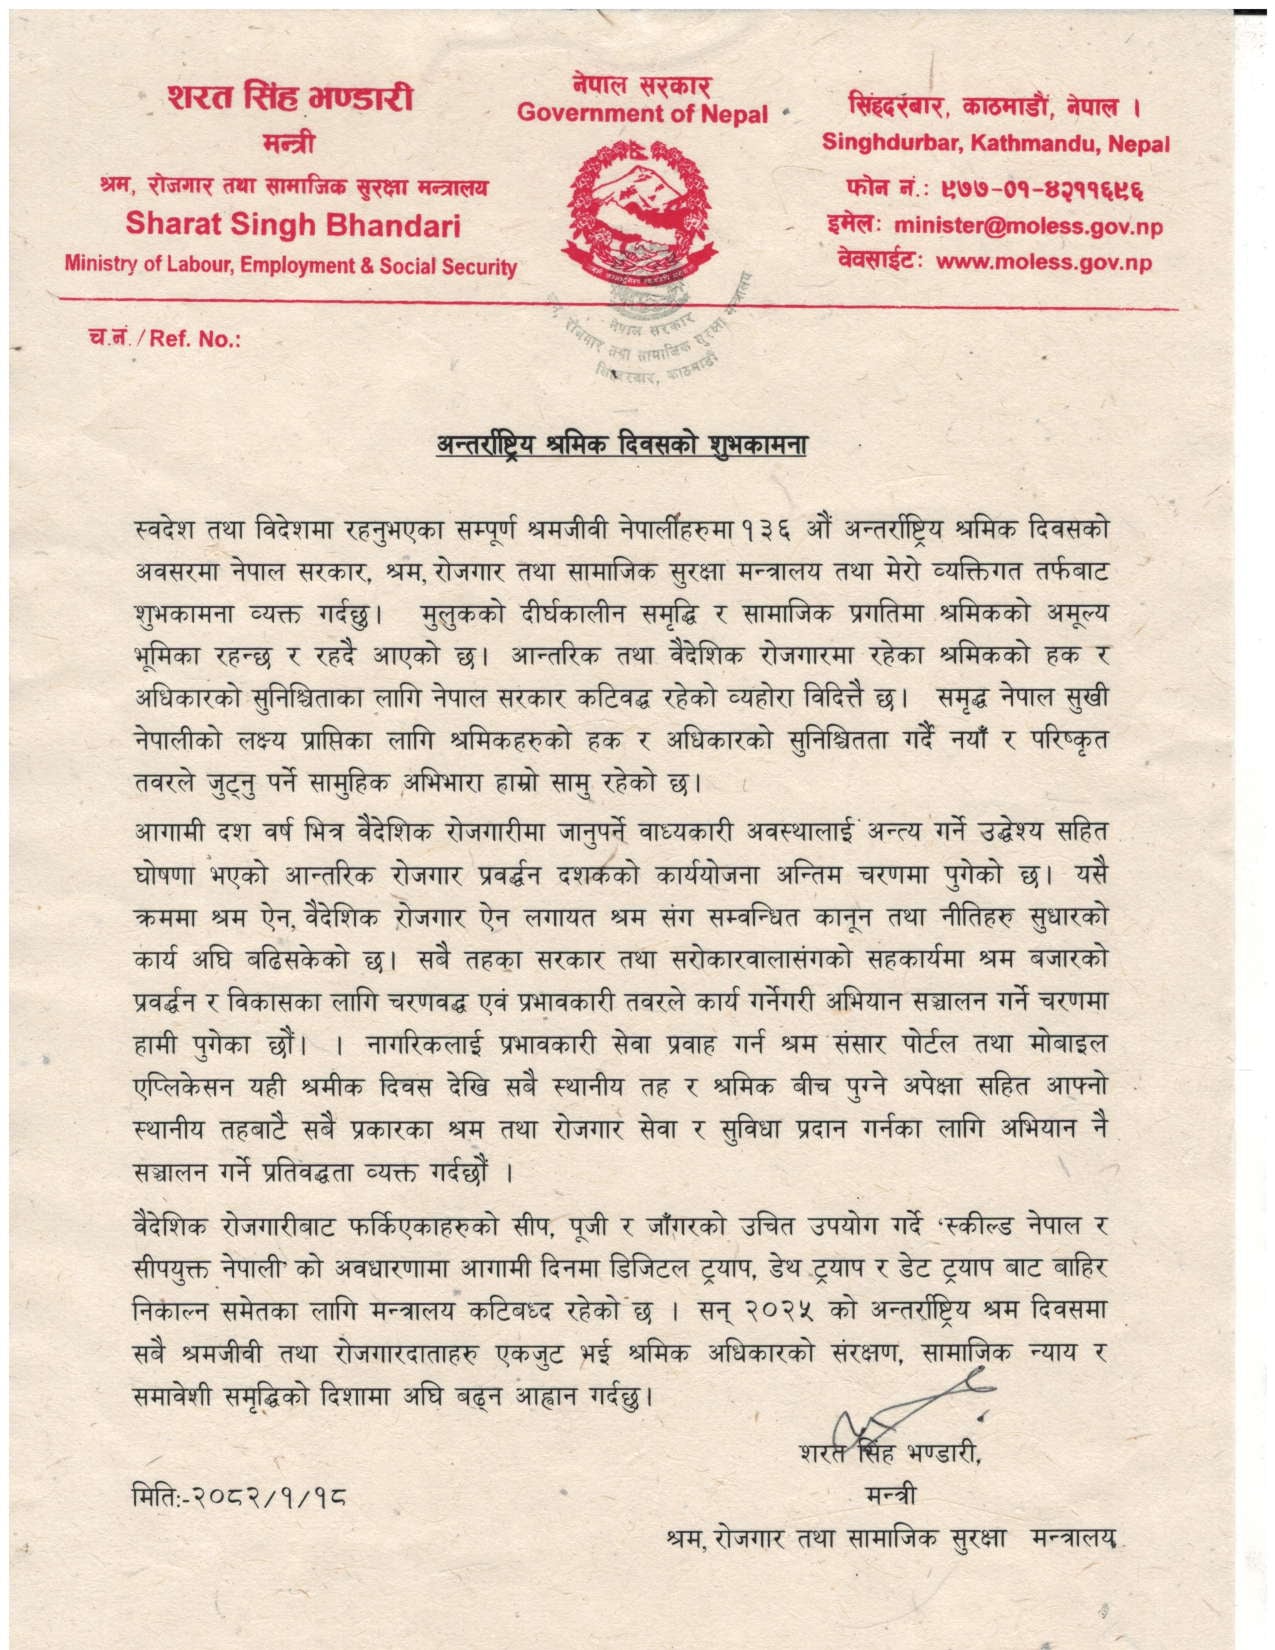 शरत सिंह भण्डारी
मन्त्री
श्रम, रोजगार तथा सामाजिक सुरक्षा मन्त्रालय
Sharat Singh Bhandari
Ministry of Labour, Employment & Social Security
नेपाल सरकार
Government of Nepal
सिंहदरबार, काठमाडौं, नेपाल ।
Singhdurbar, Kathmandu, Nepal
फोन नं.: ९७७-०१-४२११६९६
इमेल: minister@moless.gov.np
वेवसाईट: www.moless.gov.np
नेपाल सरकार
रोजगार तथा सामाजिक सुरक्षा मन्त्रालय
काठमाडौं
च.नं. / Ref. No.:
अन्तर्राष्ट्रिय श्रमिक दिवसको शुभकामना
स्वदेश तथा विदेशमा रहनुभएका सम्पूर्ण श्रमजीवी नेपालीहरुमा १३६ औं अन्तर्राष्ट्रिय श्रमिक दिवसको
अवसरमा नेपाल सरकार, श्रम, रोजगार तथा सामाजिक सुरक्षा मन्त्रालय तथा मेरो व्यक्तिगत तर्फबाट
शुभकामना व्यक्त गर्दछु। मुलुकको दीर्घकालीन समृद्धि र सामाजिक प्रगतिमा श्रमिकको अमूल्य
भूमिका रहन्छ र रहदै आएको छ। आन्तरिक तथा वैदेशिक रोजगारमा रहेका श्रमिकको हक र
अधिकारको सुनिश्चिताका लागि नेपाल सरकार कटिवद्ध रहेको व्यहोरा विदित्तै छ। समृद्ध नेपाल सुखी
नेपालीको लक्ष्य प्राप्तिका लागि श्रमिकहरुको हक र अधिकारको सुनिश्चितता गर्दै नयाँ र परिष्कृत
तवरले जुट्नु पर्ने सामुहिक अभिभारा हाम्रो सामु रहेको छ।
आगामी दश वर्ष भित्र वैदेशिक रोजगारीमा जानुपर्ने वाध्यकारी अवस्थालाई अन्त्य गर्ने उद्धेश्य सहित
घोषणा भएको आन्तरिक रोजगार प्रवर्द्धन दशकको कार्ययोजना अन्तिम चरणमा पुगेको छ। यसै
क्रममा श्रम ऐन, वैदेशिक रोजगार ऐन लगायत श्रम संग सम्वन्धित कानून तथा नीतिहरु सुधारको
कार्य अघि बढिसकेको छ। सबै तहका सरकार तथा सरोकारवालासंगको सहकार्यमा श्रम बजारको
प्रवर्द्धन र विकासका लागि चरणवद्ध एवं प्रभावकारी तवरले कार्य गर्नेगरी अभियान सञ्चालन गर्ने चरणमा
हामी पुगेका छौं। । नागरिकलाई प्रभावकारी सेवा प्रवाह गर्न श्रम संसार पोर्टल तथा मोबाइल
एप्लिकेसन यही श्रमीक दिवस देखि सबै स्थानीय तह र श्रमिक बीच पुग्ने अपेक्षा सहित आफ्नो
स्थानीय तहबाटै सबै प्रकारका श्रम तथा रोजगार सेवा र सुविधा प्रदान गर्नका लागि अभियान नै
सञ्चालन गर्ने प्रतिवद्धता व्यक्त गर्दछौं ।
वैदेशिक रोजगारीबाट फर्किएकाहरुको सीप, पूजी र जाँगरको उचित उपयोग गर्दे 'स्कील्ड नेपाल र
सीपयुक्त नेपाली' को अवधारणामा आगामी दिनमा डिजिटल ट्रयाप, डेथ ट्रयाप र डेट ट्रयाप बाट बाहिर
निकाल्न समेतका लागि मन्त्रालय कटिबध्द रहेको छ । सन् २०२५ को अन्तर्राष्ट्रिय श्रम दिवसमा
सबै श्रमजीवी तथा रोजगारदाताहरु एकजुट भई श्रमिक अधिकारको संरक्षण, सामाजिक न्याय र
समावेशी समृद्धिको दिशामा अघि बढ्न आह्वान गर्दछु।
शरत सिंह भण्डारी,
मिति:-२०८२/१/१८
मन्त्री
श्रम, रोजगार तथा सामाजिक सुरक्षा मन्त्रालय